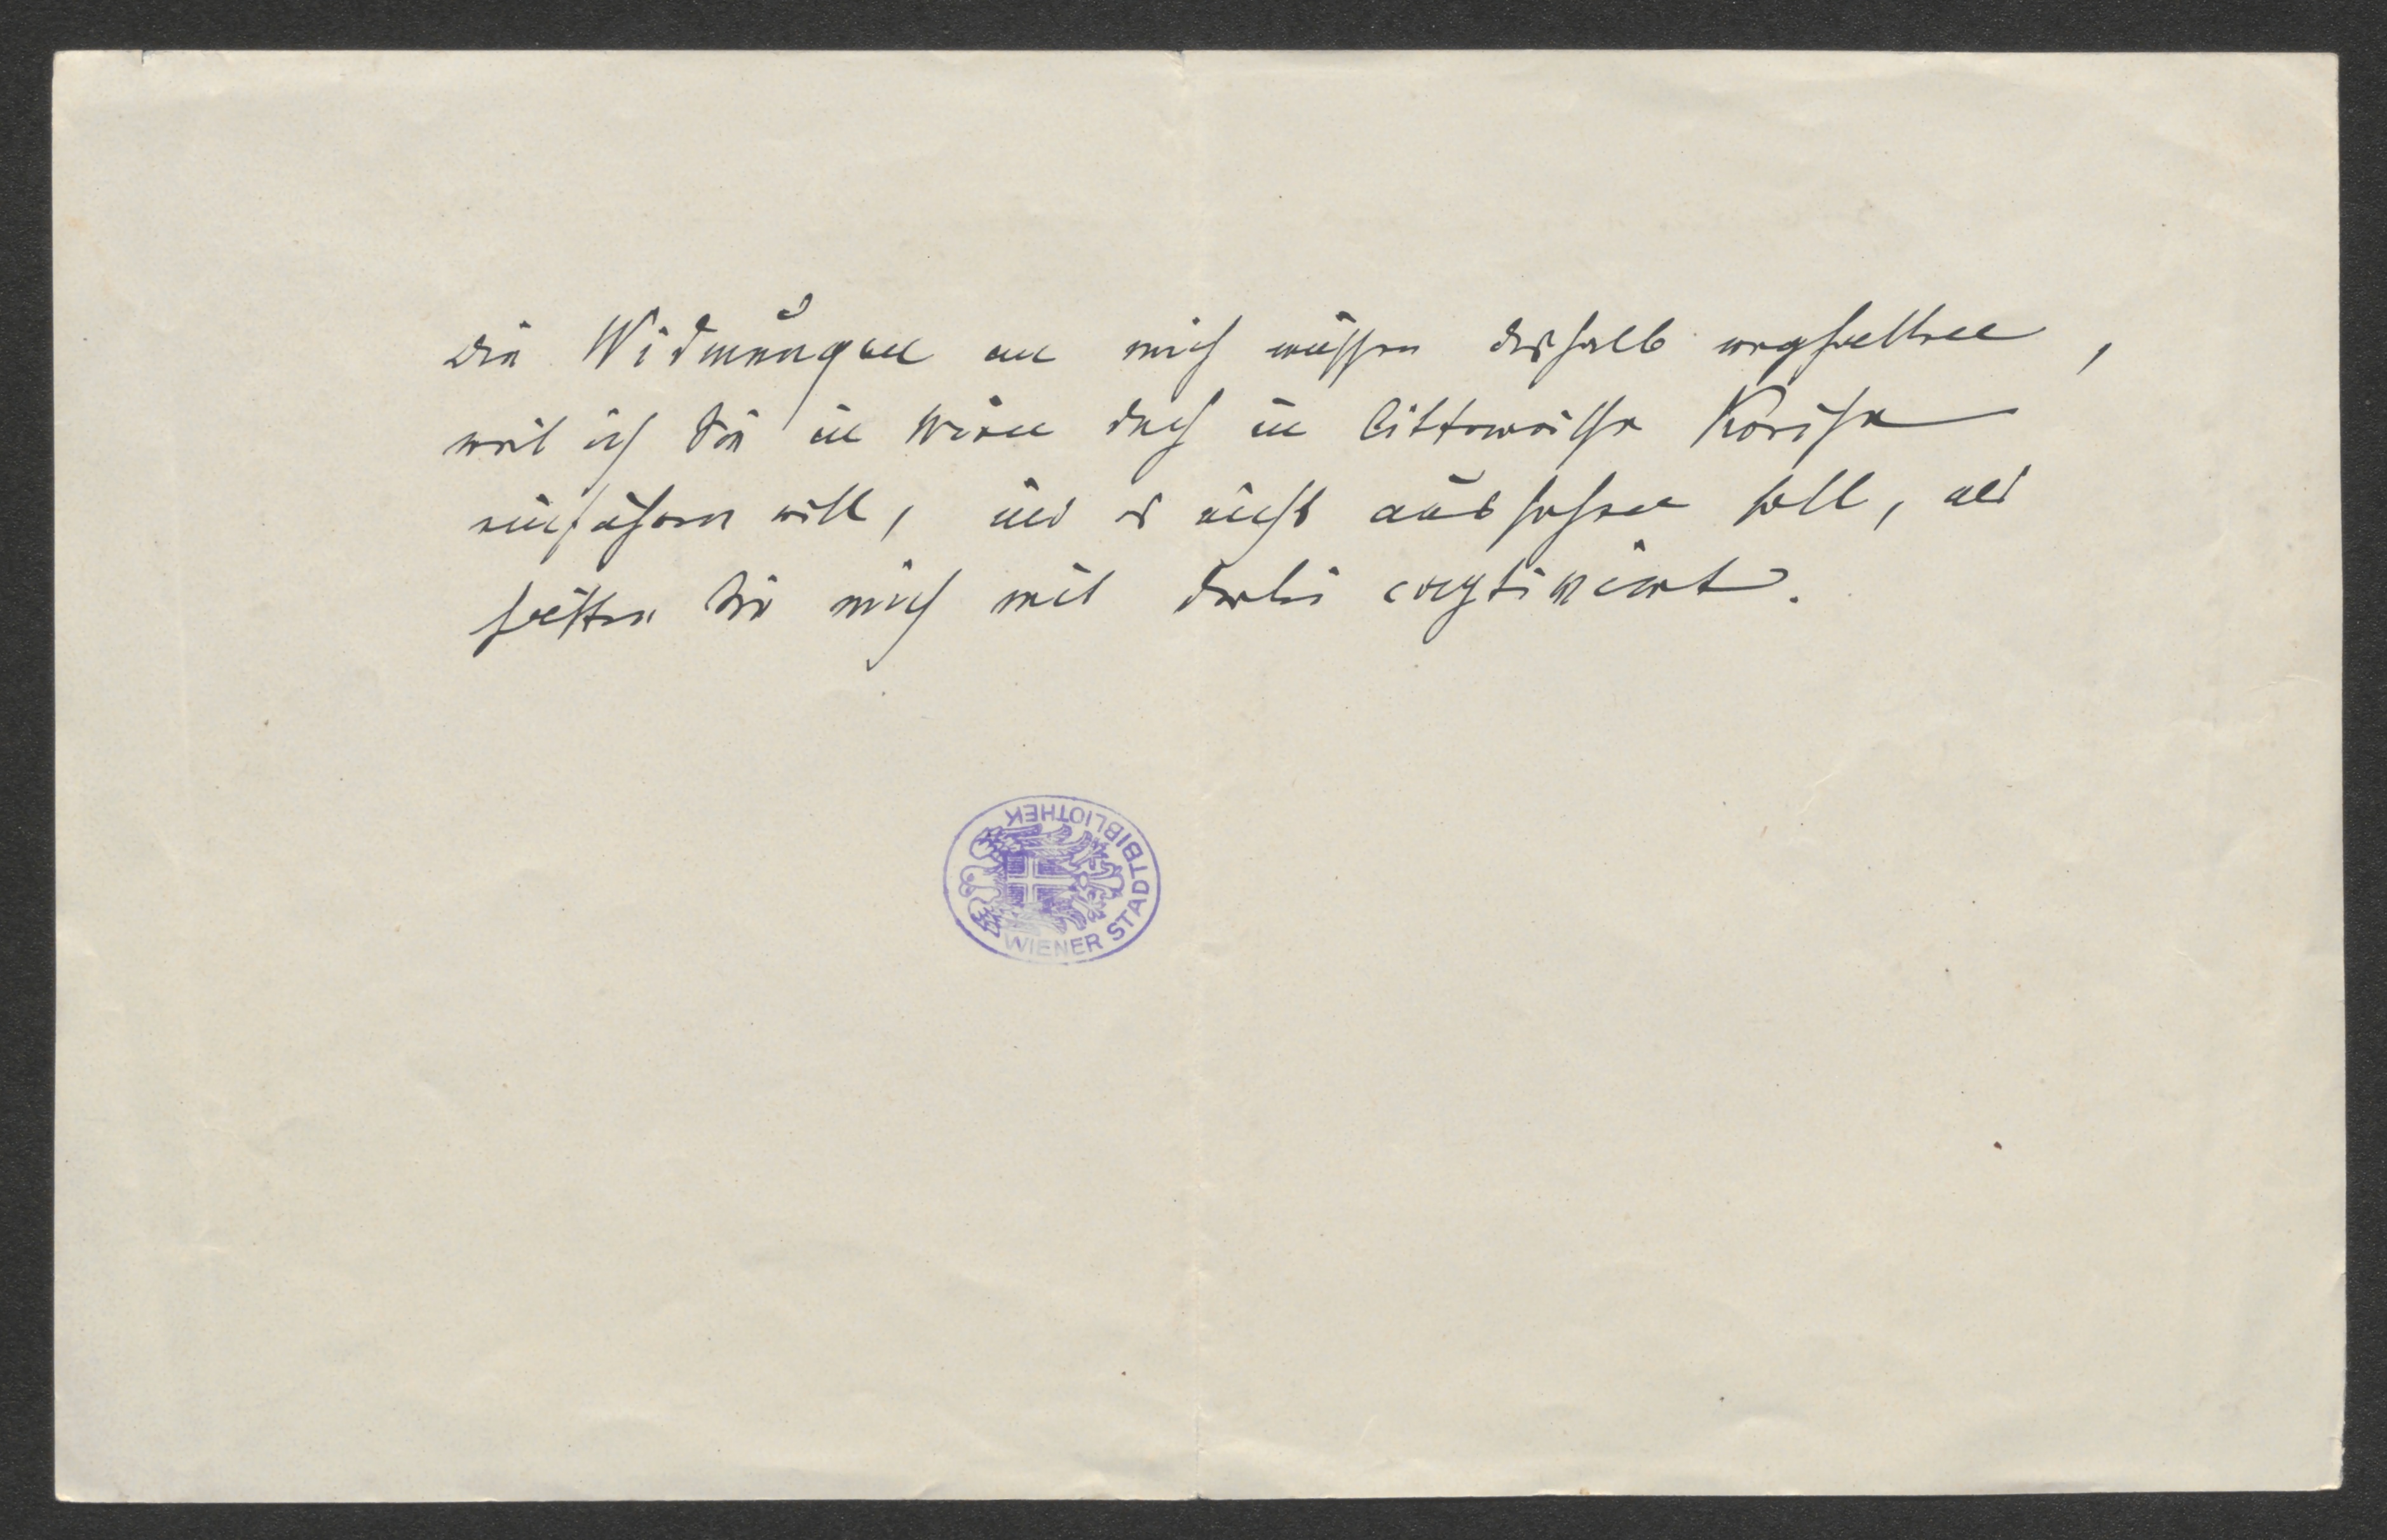 Die Widmungen an mich müssen deshalb wegfallen,
weil ich Sie in Wien doch in litterarische Kreise
einführen will, und es nicht aussehen soll, als
hätten Sie mich mit derlei captivirt.
WIENER STADTBIBLIOTHEK